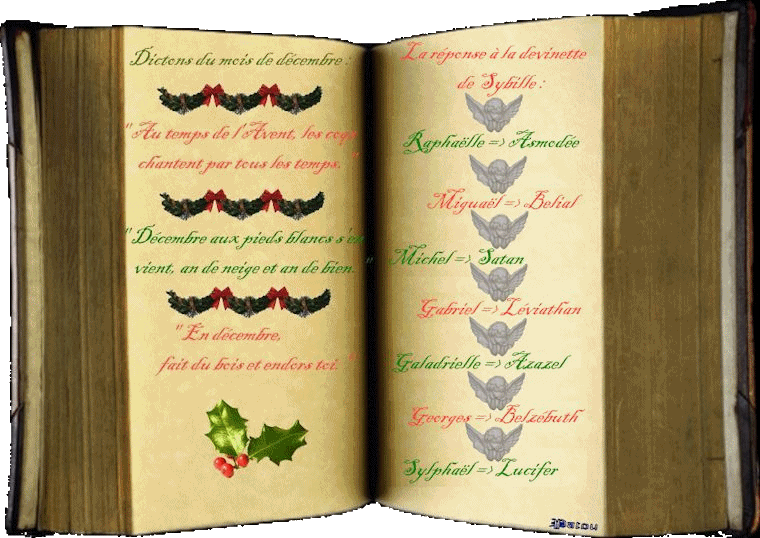 Dictons du mois de décembre :
" Au temps de l'Avent, les coqs
chantent par tous les temps. "
" Décembre aux pieds blancs s'en
vient, an de neige et an de bien. "
" En décembre,
fait du bois et endors toi. "
La réponse à la devinette
de Sybille :
Raphaëlle => Asmodée
Miguaël => Belial
Michel => Satan
Gabriel => Léviathan
Galadrielle => Azazel
Georges => Belzébuth
Sylphaël => Lucifer